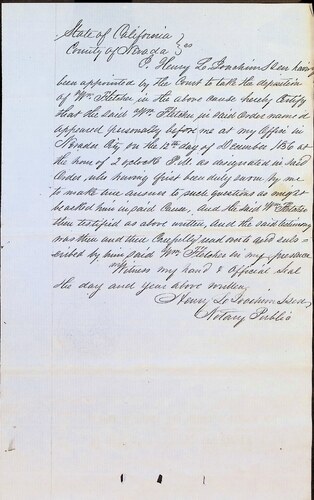 State of California
County of Nevada } ss
I, Henry
been appointed by the Court to take the deposition
of Wm Fletcher in the above cause hereby Certify
that the said Wm Fletcher in said Order named
appeared personally before me at my Office in
Nevada City on the 12th day of December 1856 at
the hour of 2 oclock P.M. as designated in said
Order, who having first been duly sworn by me
to make true answers to such questions as might
be asked him in said Cause, And the said Wm Fletcher
then testified as above written, and the said testimony
was then and there Carefully read over to and subs
cribed by him said Wm Fletcher in my presence
Witness my hand & Official seal
the day and year above written
Henry
Notary Public